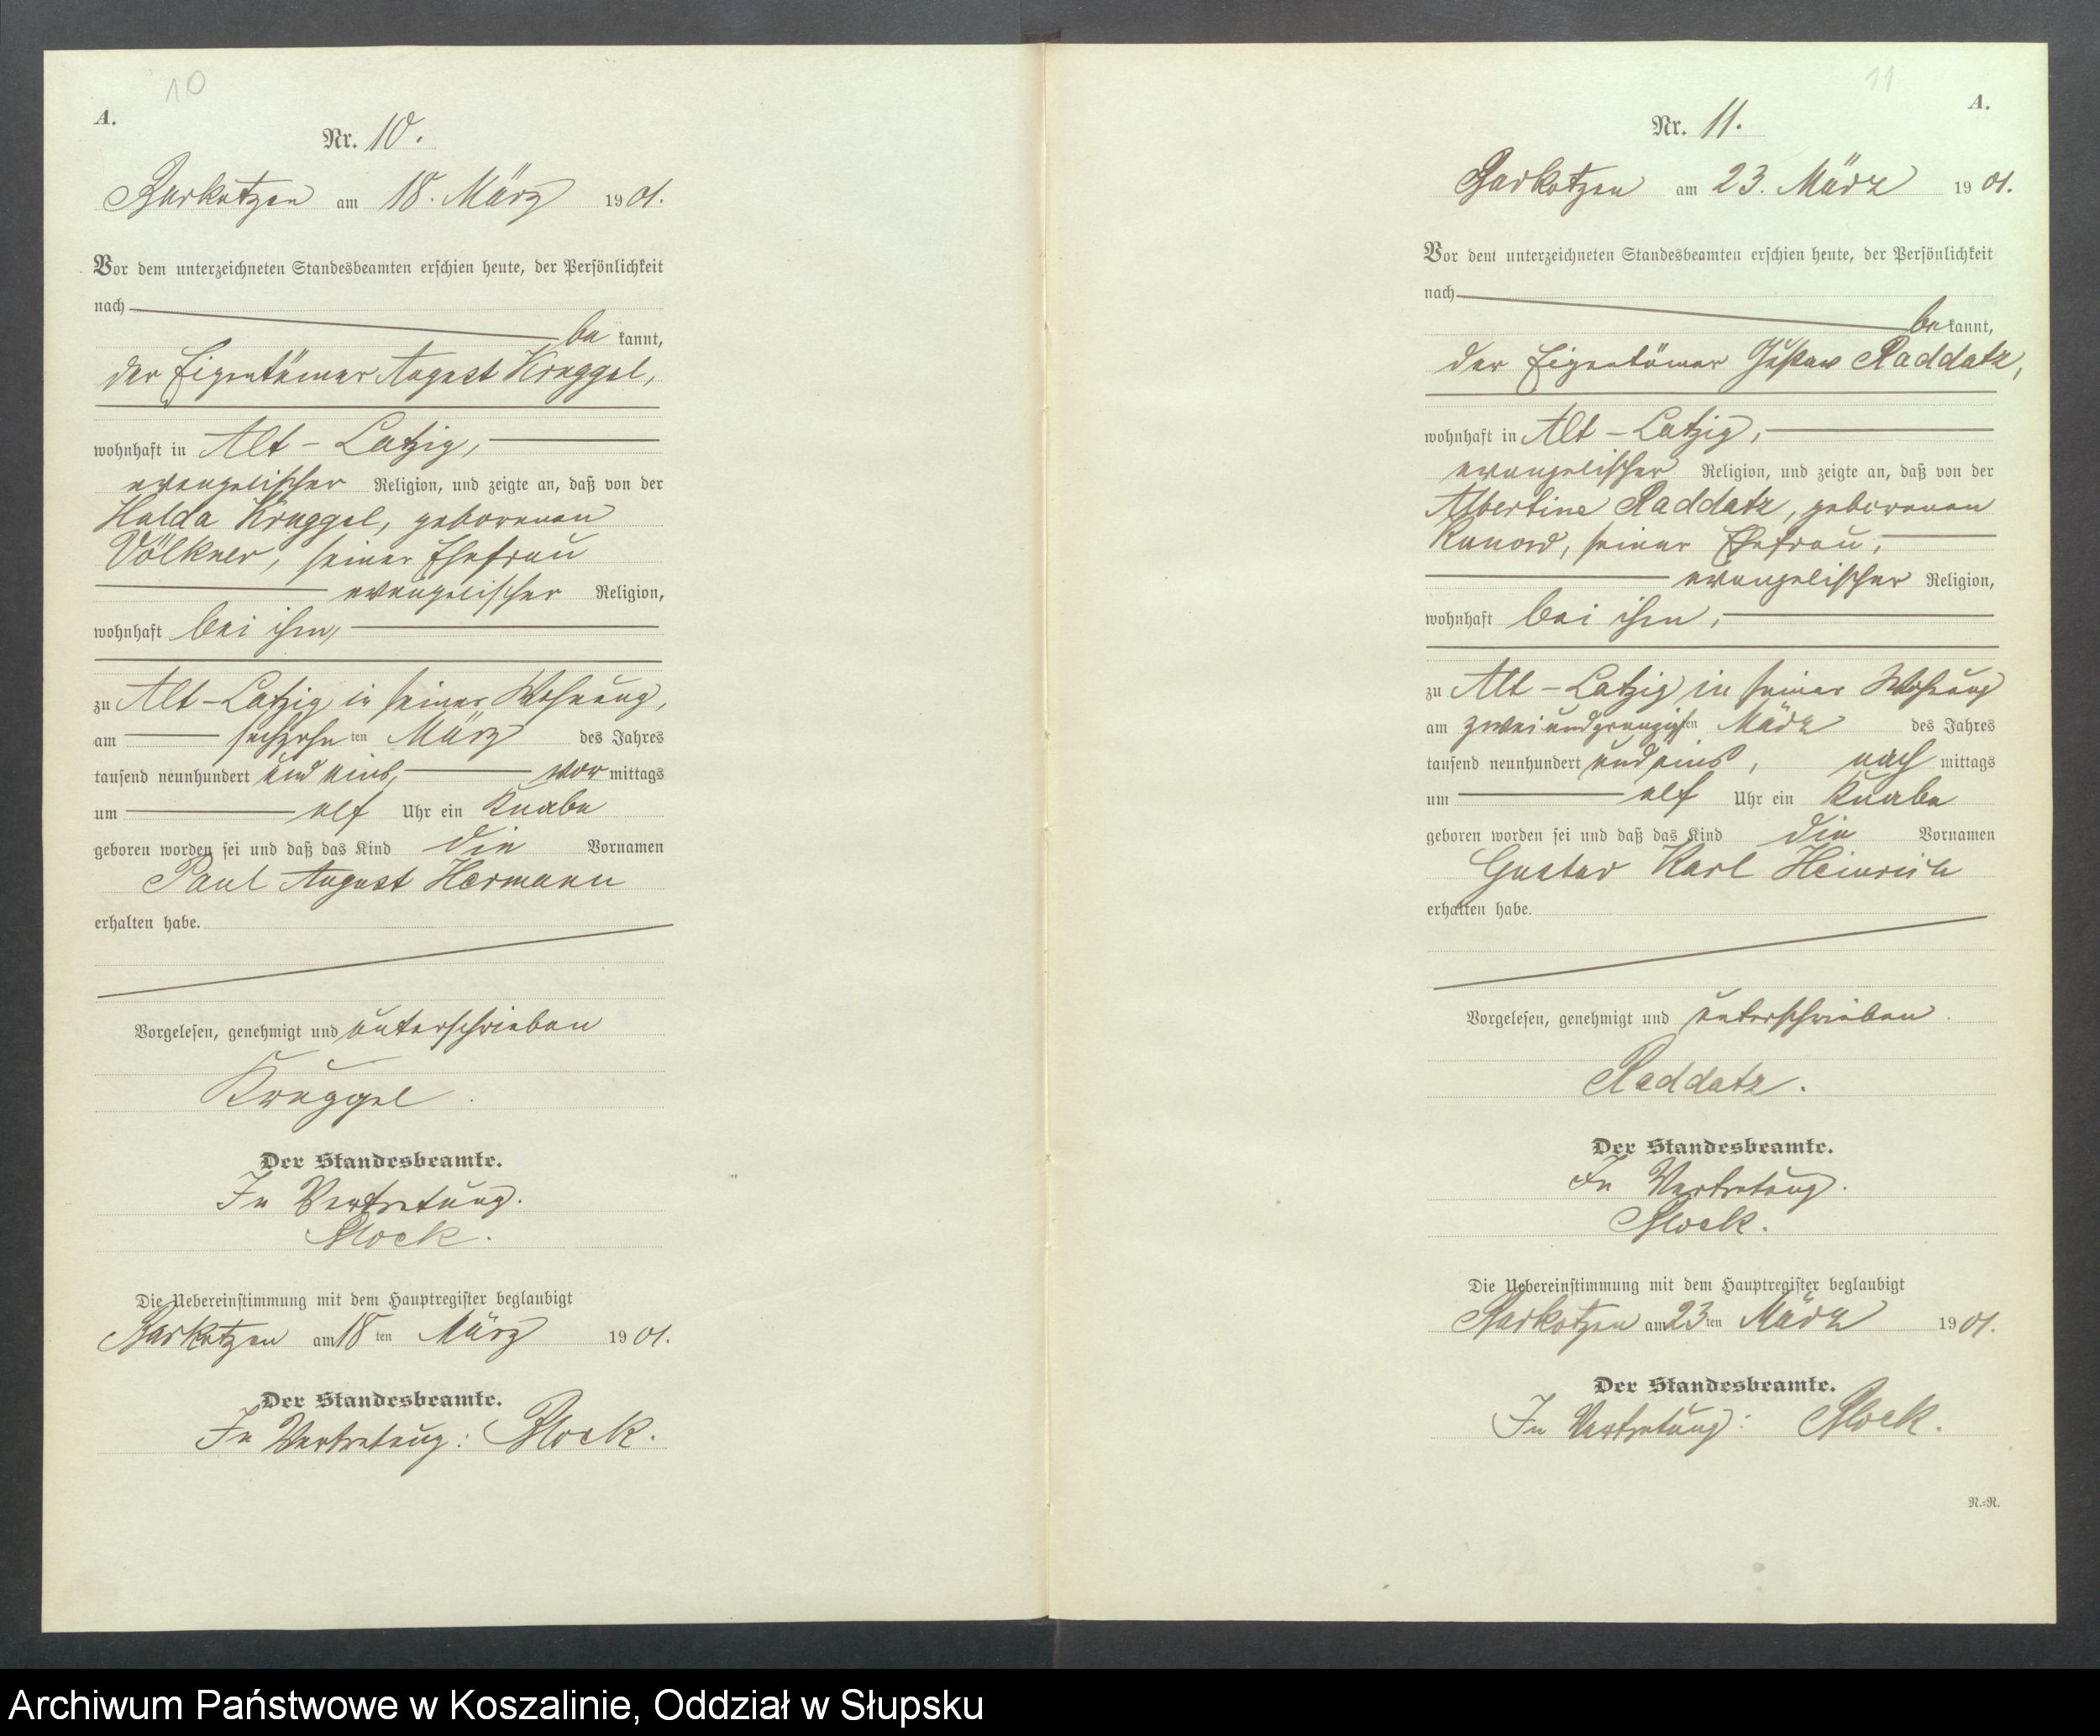 10
A.
Nr. 10.
Barkotzen am 18. März 1901.
Vor dem unterzeichneten Standesbeamten erschien heute, der Persönlichkeit
nach
be kannt,
der Eigentümer August Kruggel,
wohnhaft in Alt-Latzig,
evangelischer Religion, und zeigte an, daß von der
Hulda Kruggel, geborenen
Völkner, seiner Ehefrau
evangelischer Religion,
wohnhaft bei ihm,
zu Alt-Latzig in seiner Wohnung,
am sechzehn ten März des Jahres
tausend neunhundert und eins, vor mittags
um elf Uhr ein Knabe
geboren worden sei und daß das Kind die Vornamen
Paul August Hermann
erhalten habe.
Vorgelesen, genehmigt und unterschrieben
Kruggel.
Der Standesbeamte.
In Vertretung.
Block.
Die Uebereinstimmung mit dem Hauptregister beglaubigt
Barkotzen am 18 ten März 1901.
Der Standesbeamte.
In Vertretung: Block.
11
A.
Nr. 11.
Barkotzen am 23. März 1901.
Vor dem unterzeichneten Standesbeamten erschien heute, der Persönlichkeit
nach
be kannt,
der Eigentümer Gustav Raddatz,
wohnhaft in Alt-Latzig,
evangelischer Religion, und zeigte an, daß von der
Albertine Raddatz, geborenen
seiner Ehefrau,
evangelischer Religion,
wohnhaft bei ihm,
zu Alt-Latzig in seiner Wohnung
am zweiundzwanzigsten März des Jahres
tausend neunhundert und eins, nach mittags
um elf Uhr ein Knabe
geboren worden sei und daß das Kind die Vornamen
Gustav Karl Heinrich
erhalten habe.
Vorgelesen, genehmigt und unterschrieben.
Raddatz.
Der Standesbeamte.
In Vertretung.
Block.
Die Uebereinstimmung mit dem Hauptregister beglaubigt
Barkotzen am 23 ten März 1901.
Der Standesbeamte.
In Vertretung: Block.
N.-N.
Archiwum Państwowe w Koszalinie, Oddział w Słupsku